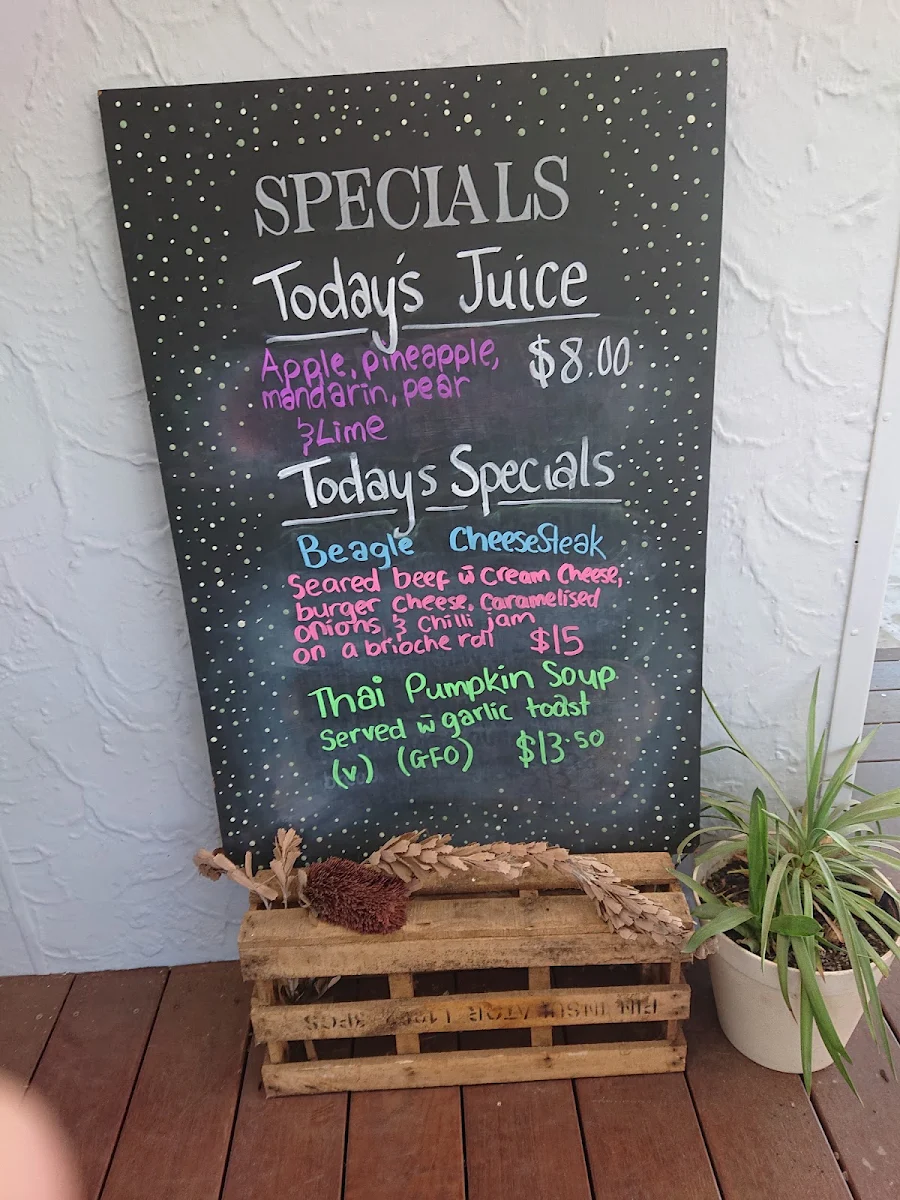 SPECIALS
Today's Juice
Apple, pineapple, $8.00
mandarin, pear
& Lime
Todays Specials
Beagle CheeseSteak
Seared beef w̄ Cream Cheese,
burger cheese, Caramelised
onions & Chilli jam
on a brioche roll $15
Thai Pumpkin Soup
Served w̄ garlic toast
(v) (GFO) $13.50